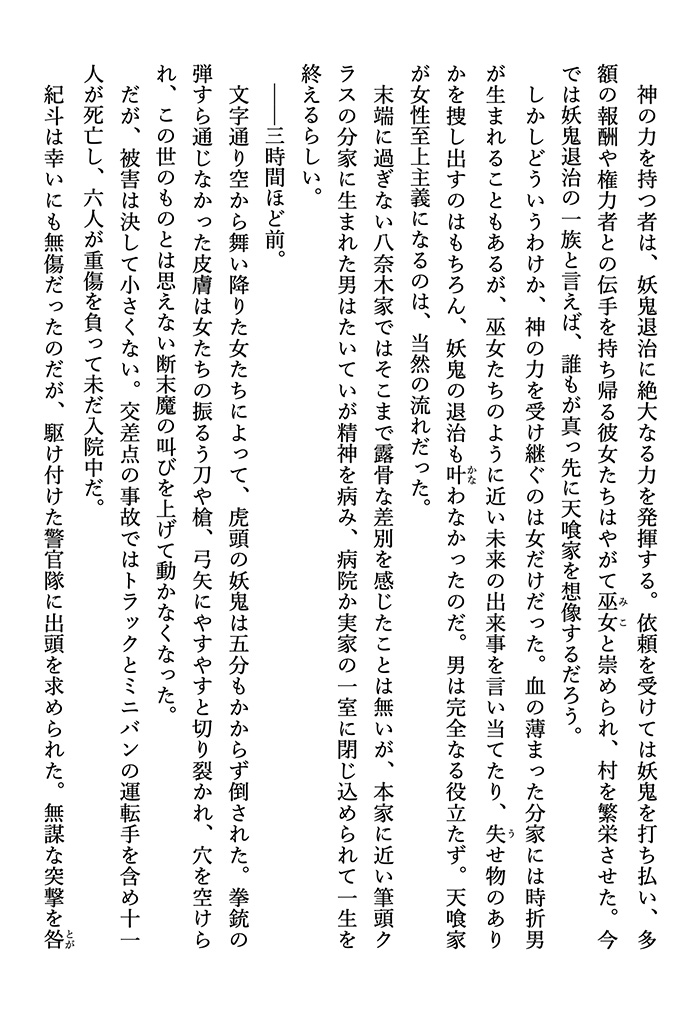 神の力を持つ者は、妖鬼退治に絶大なる力を発揮する。依頼を受けては妖鬼を打ち払い、多
額の報酬や権力者との伝手を持ち帰る彼女たちはやがて巫女と崇められ、村を繁栄させた。今
では妖鬼退治の一族と言えば、誰もが真っ先に天喰家を想像するだろう。
しかしどういうわけか、神の力を受け継ぐのは女だけだった。血の薄まった分家には時折男
が生まれることもあるが、巫女たちのように近い未来の出来事を言い当てたり、失せ物のあり
かを捜し出すのはもちろん、妖鬼の退治も叶わなかったのだ。男は完全なる役立たず。天喰家
が女性至上主義になるのは、当然の流れだった。
末端に過ぎない八奈木家ではそこまで露骨な差別を感じたことは無いが、本家に近い筆頭ク
ラスの分家に生まれた男はたいていが精神を病み、病院か実家の一室に閉じ込められて一生を
終えるらしい。
――三時間ほど前。
文字通り空から舞い降りた女たちによって、虎頭の妖鬼は五分もかからず倒された。拳銃の
弾すら通じなかった皮膚は女たちの振るう刀や槍、弓矢にやすやすと切り裂かれ、穴を空けら
れ、この世のものとは思えない断末魔の叫びを上げて動かなくなった。
だが、被害は決して小さくない。交差点の事故ではトラックとミニバンの運転手を含め十一
人が死亡し、六人が重傷を負って未だ入院中だ。
紀斗は幸いにも無傷だったのだが、駆け付けた警官隊に出頭を求められた。無謀な突撃を咎